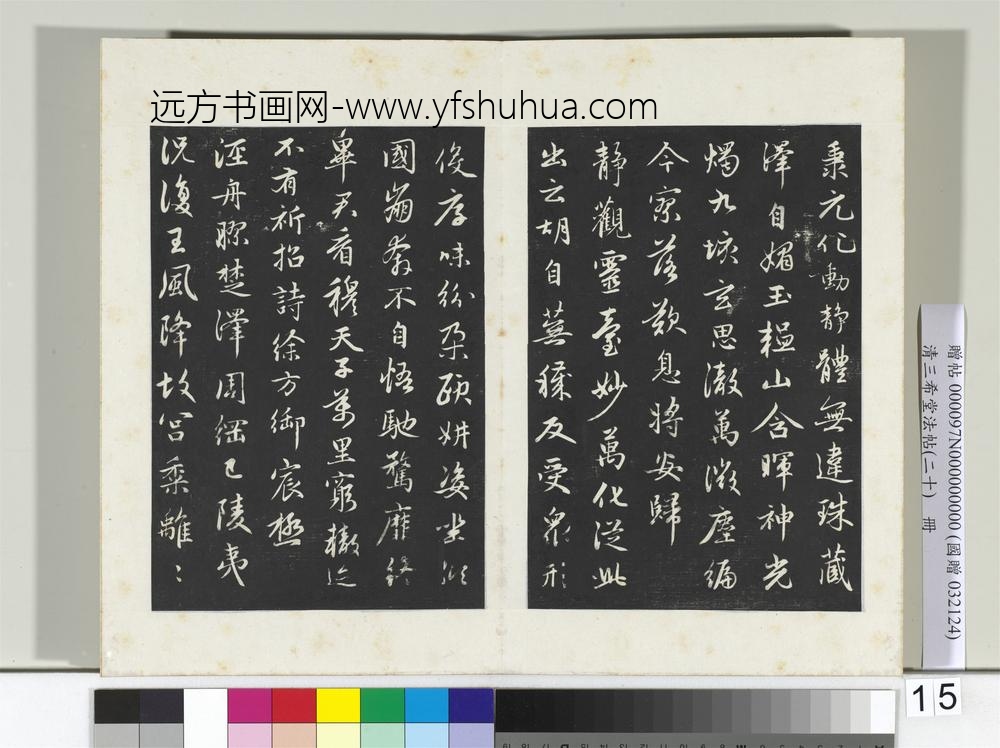 远方书画网-www.yfshuhua.com
秉元化動靜體無違珠藏
澤自媚玉韞山含暉神光
燭九垓玄思澈萬微塵編
今寥落歎息將安歸
靜觀靈臺妙萬化從此
出云胡自蕪穢反受眾形
役厚味紛朵頤妍姿坐傾
國崩奔不自悟馳騖靡終
畢君看穆天子萬里窮轍迹
不有祈招詩徐方御宸極
涇舟膠楚澤周綱已陵夷
況復王風降故宮黍離〻
贈帖 000097N000000000 (國贈 032124)
清三希堂法帖(二十) 冊
15